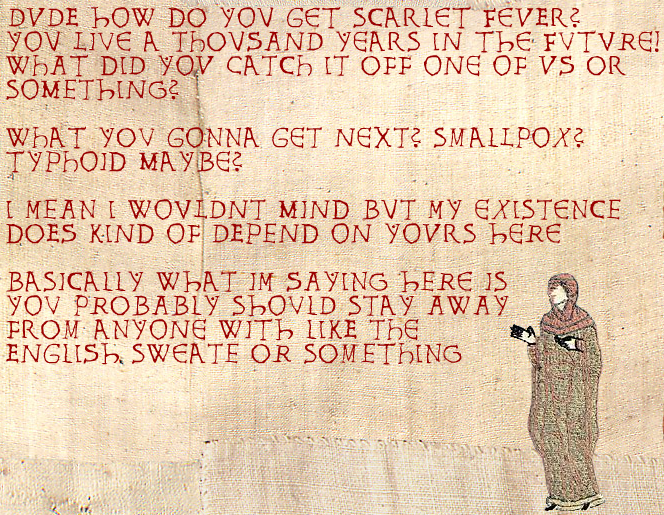 DVDE hOW DO YOV GET SCARLET FEVER?
YOV LIVE A ThOVSAND YEARS IN ThE FVTVRE!
WhAT DID YOV CATCh IT OFF ONE OF VS OR
SOMEThING?
WhAT YOV GONNA GET NEXT? SMALLPOX?
TYPhOID MAYBE?
I MEAN I WOVLDNT MIND BVT MY EXISTENCE
DOES KIND OF DEPEND ON YOVRS hERE
BASICALLY WhAT IM SAYING hERE IS
YOV PROBABLY ShOVLD STAY AWAY
FROM ANYONE WITh LIKE ThE
ENGLISh SWEATE OR SOMEThING